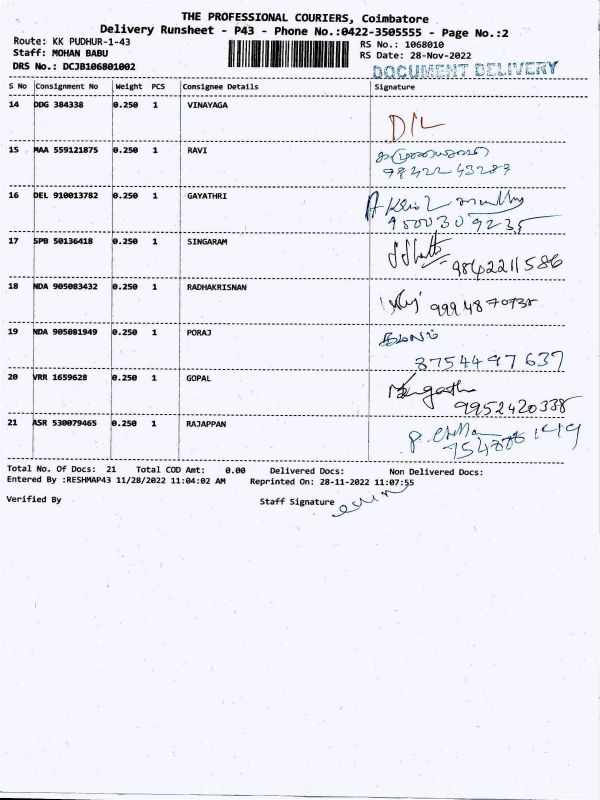 THE PROFESSIONAL COURIERS, Coimbatore
Delivery Runsheet - P43 - Phone No.:0422-3505555 - Page No.:2
Route: KK PUDHUR-1-43 RS No.: 1068010
Staff: MOHAN BABU RS Date: 28-Nov-2022
DRS No.: DCJB106801002 DOCUMENT DELIVERY
S No Consignment No Weight PCS Consignee Details Signature
14 DDG 384338 0.250 1 VINAYAGA
D/L
15 MAA 559121875 0.250 1 RAVI
98422 43289
16 DEL 910013782 0.250 1 GAYATHRI
9500309235
17 SPB 50136418 0.250 1 SINGARAM
9842211586
18 NDA 905083432 0.250 1 RADHAKRISNAN
9994870738
19 NDA 905081949 0.250 1 PORAJ
8754497637
20 VRR 1659628 0.250 1 GOPAL
9952420338
21 ASR 530079465 0.250 1 RAJAPPAN
Total No. Of Docs: 21 Total COD Amt: 0.00 Delivered Docs: Non Delivered Docs:
Entered By :RESHMAP43 11/28/2022 11:04:02 AM Reprinted On: 28-11-2022 11:07:55
Verified By Staff Signature